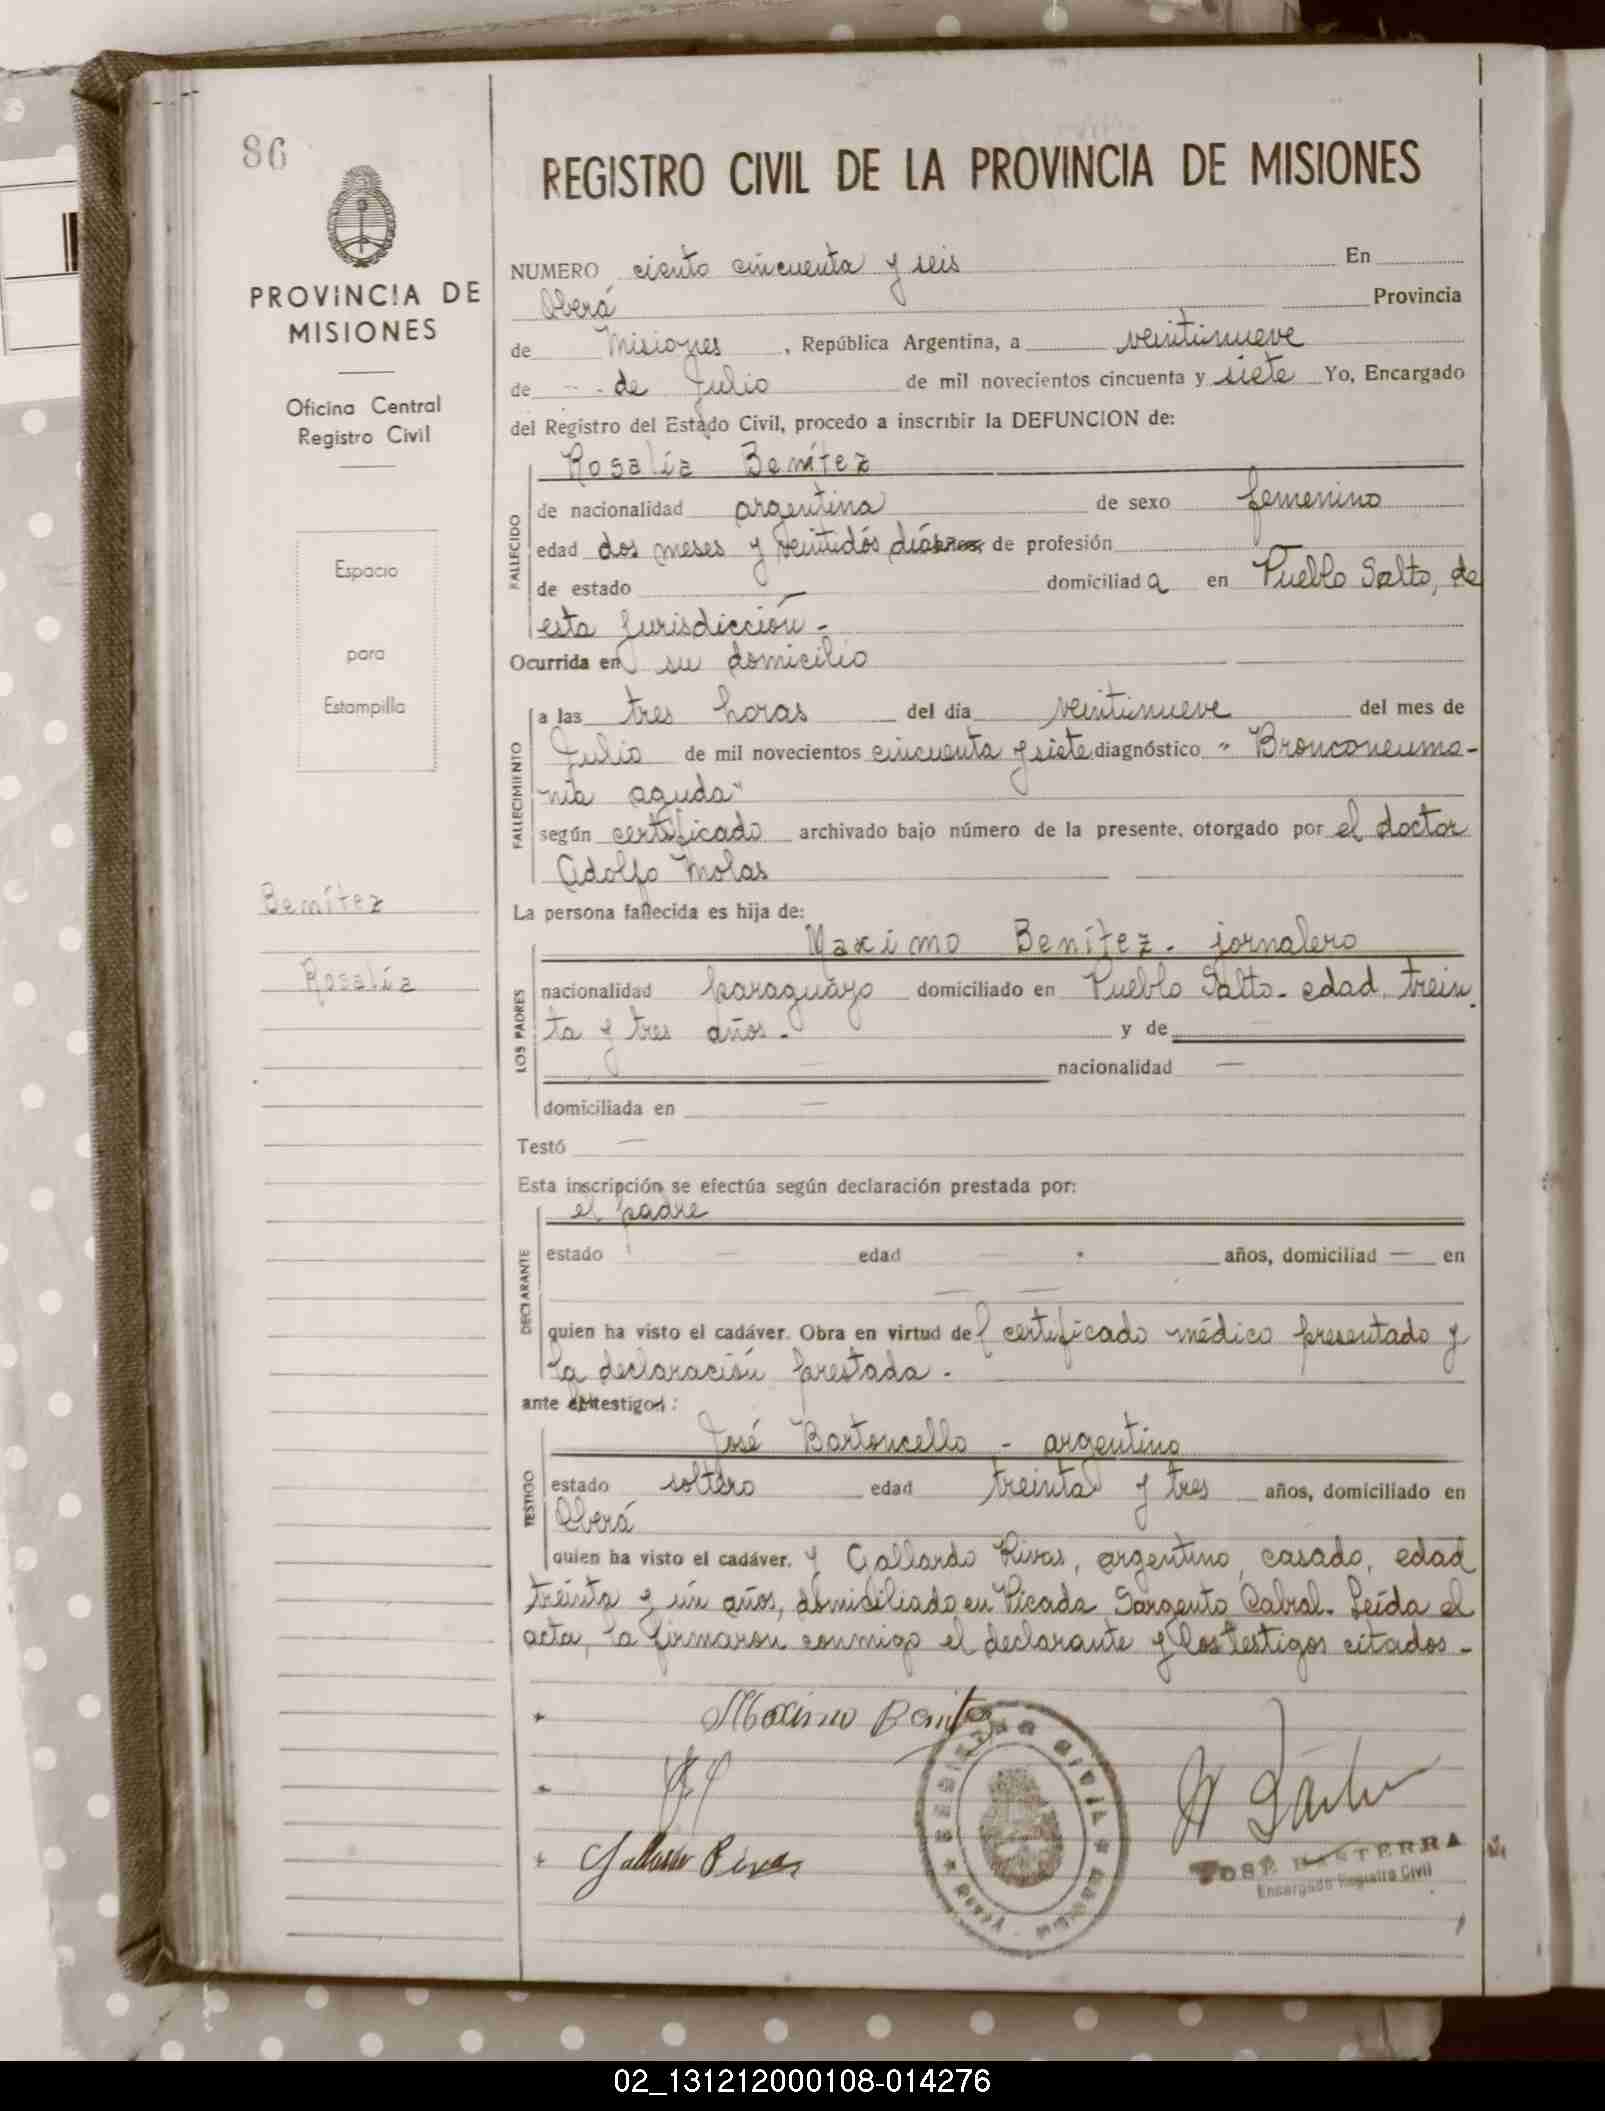 86
PROVINCIA DE
MISIONES
Oficina Central
Registro Civil
Espacio
para
Estampilla
Benítez
Rosalía
REGISTRO CIVIL DE LA PROVINCIA DE MISIONES
NUMERO ciento cincuenta y seis En
Oberá Provincia
de Misiones , República Argentina, a veintinueve
de - - de Julio de mil novecientos cincuenta y siete Yo, Encargado
del Registro del Estado Civil, procedo a inscribir la DEFUNCION de:
Rosalía Benítez
FALLECIDO
de nacionalidad argentina de sexo femenino
edad dos meses y veintidós días de profesión
de estado domiciliad a en Pueblo Salto, de
esta jurisdicción -
Ocurrida en su domicilio
FALLECIMIENTO
a las tres horas del día veintinueve del mes de
Julio de mil novecientos cincuenta y siete diagnóstico "Bronconeumo-
nía aguda"
según certificado archivado bajo número de la presente, otorgado por el doctor
Adolfo Molas
La persona fallecida es hija de:
LOS PADRES
Maximo Benítez - jornalero
nacionalidad paraguayo domiciliado en Pueblo Salto - edad trein
ta y tres años - y de
— nacionalidad —
domiciliada en —
Testó —
Esta inscripción se efectúa según declaración prestada por:
DECLARANTE
el padre
estado — edad — años, domiciliad — en
— —
quien ha visto el cadáver. Obra en virtud del certificado médico presentado y
la declaración prestada -
ante testigo :
TESTIGO
José Bartoncello - argentino
estado soltero edad treinta y tres años, domiciliado en
Oberá
quien ha visto el cadáver. y Gallardo Rivas, argentino, casado, edad
treinta y un años, domiciliado en Picada Sargento Cabral. Leída el
acta, la firmaron conmigo el declarante y los testigos citados -
Maximo Benitez
Gallardo Rivas
REGISTRO CIVIL
JOSE BASTERRA
Encargado Registro Civil
02_131212000108-014276